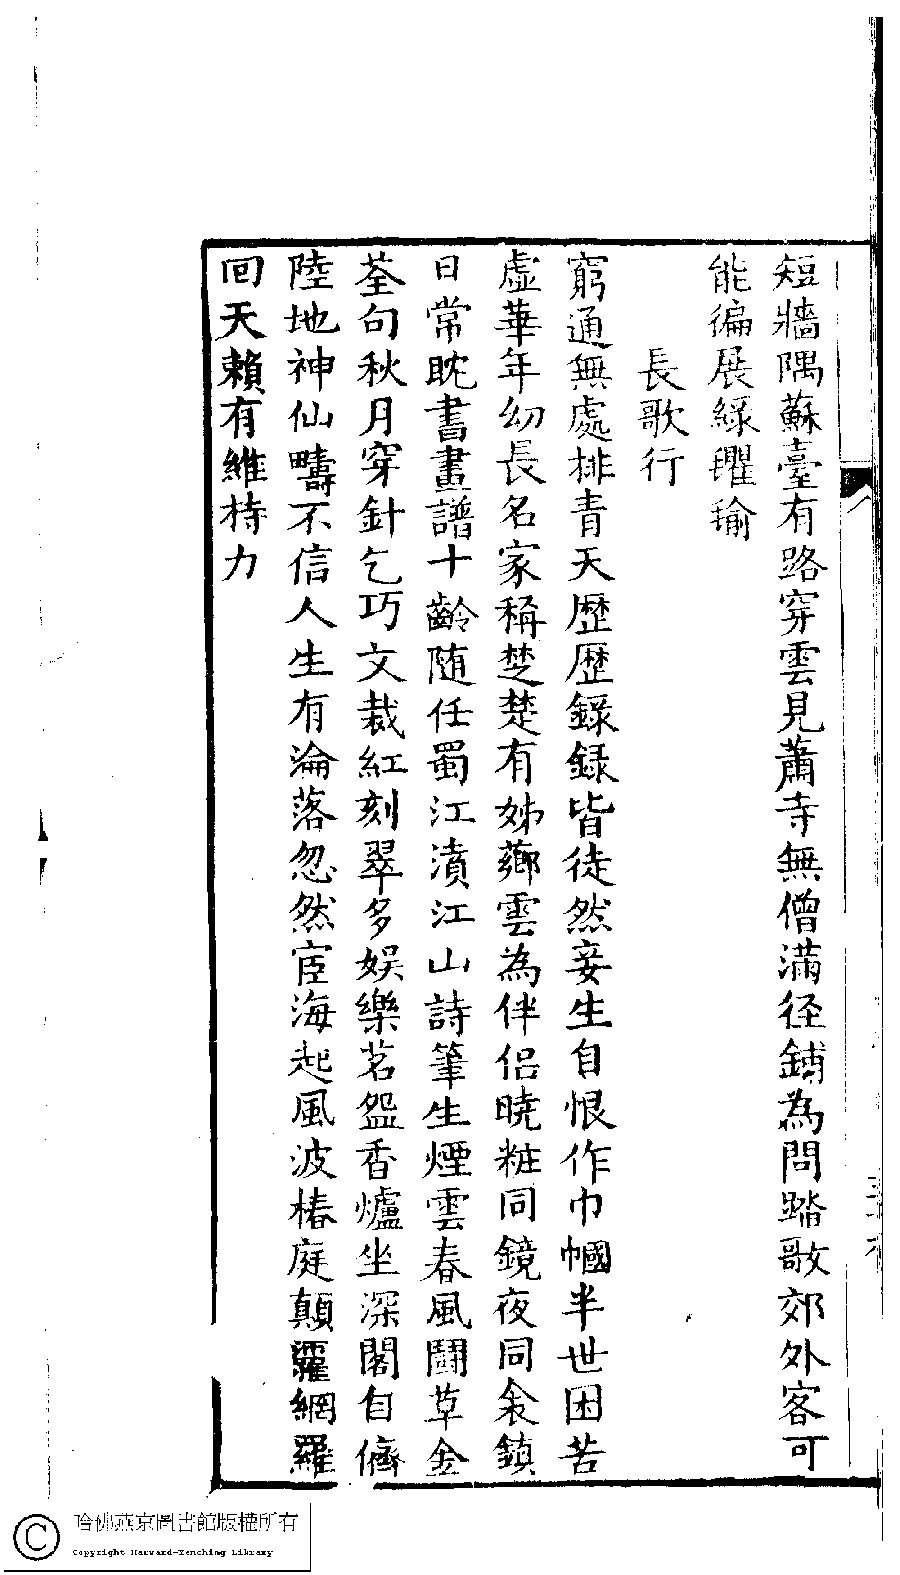 短牆隅蘇臺有路穿雲見蕭寺無僧滿径鋪為問踏歌郊外客可
能徧展綠瓘瑜
長歌行
窮通無處排青天歷歷錄錄皆徒然妾生自恨作巾幗半世困苦
虛華年幼長名家稱楚楚有姊薌雲為伴侣曉粧同鏡夜同衾鎮
日常眈書畫譜十齡随任蜀江濆江山詩筆生煙雲春風鬪草金
荃句秋月穿針乞巧文裁紅刻翠多娯樂茗盌香爐坐深閣自儕
陸地神仙疇不信人生有淪落忽然宦海起風波椿庭顛網羅
回天賴有維持力
哈佛燕京圖書館版權所有
Copyright Harvard-Yenching Library